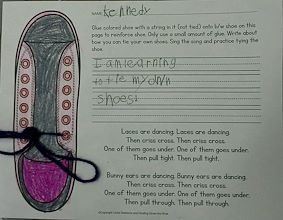 NAME kennedy
Glue colored shoe with a string in it (not tied) onto b/w shoe on this
page to reinforce shoe. Only use a small amount of glue. Write about
how you can tie your own shoes. Sing the song and practice tying the
shoe.
I am learning
to tie my own
shoes
Laces are dancing. Laces are dancing.
Then criss cross. Then criss cross.
One of them goes under. One of them goes under.
Then pull tight. Then pull tight.
Bunny ears are dancing. Bunny ears are dancing.
Then criss cross. Then criss cross.
One of them goes under. One of them goes under.
Then pull through. Then pull through.